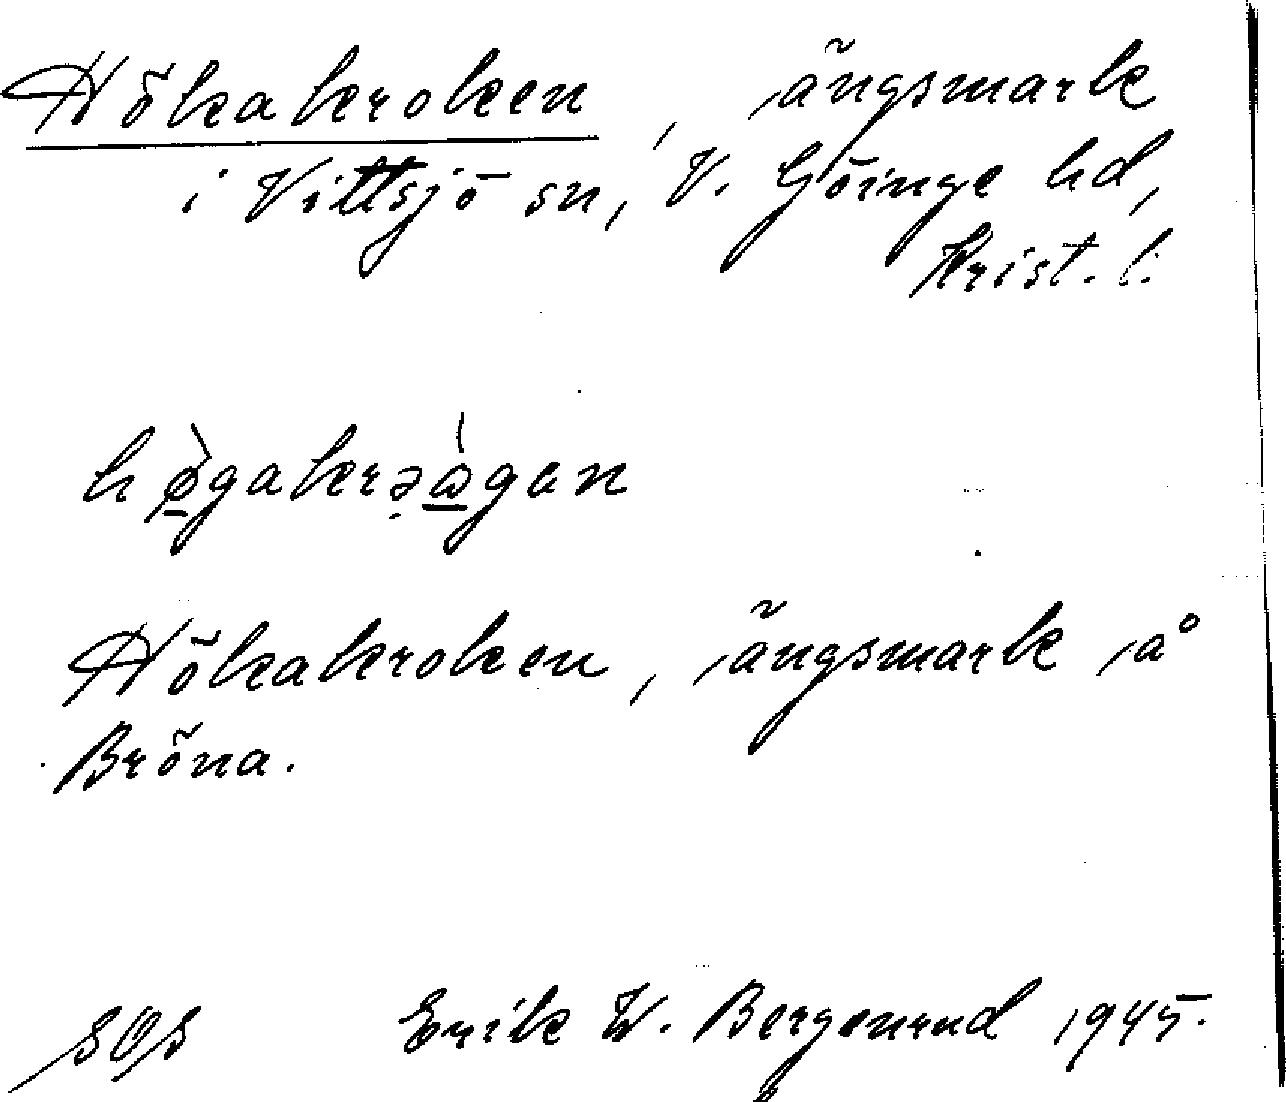 Hökakroken, ängsmark
i Vittsjö sn, V. Göinge hd,
Krist. l.
hø̀gakrəὼgan
Hökakroken, ängsmark å
Bröna.
SOS Erik W. Bergenrud 1945.